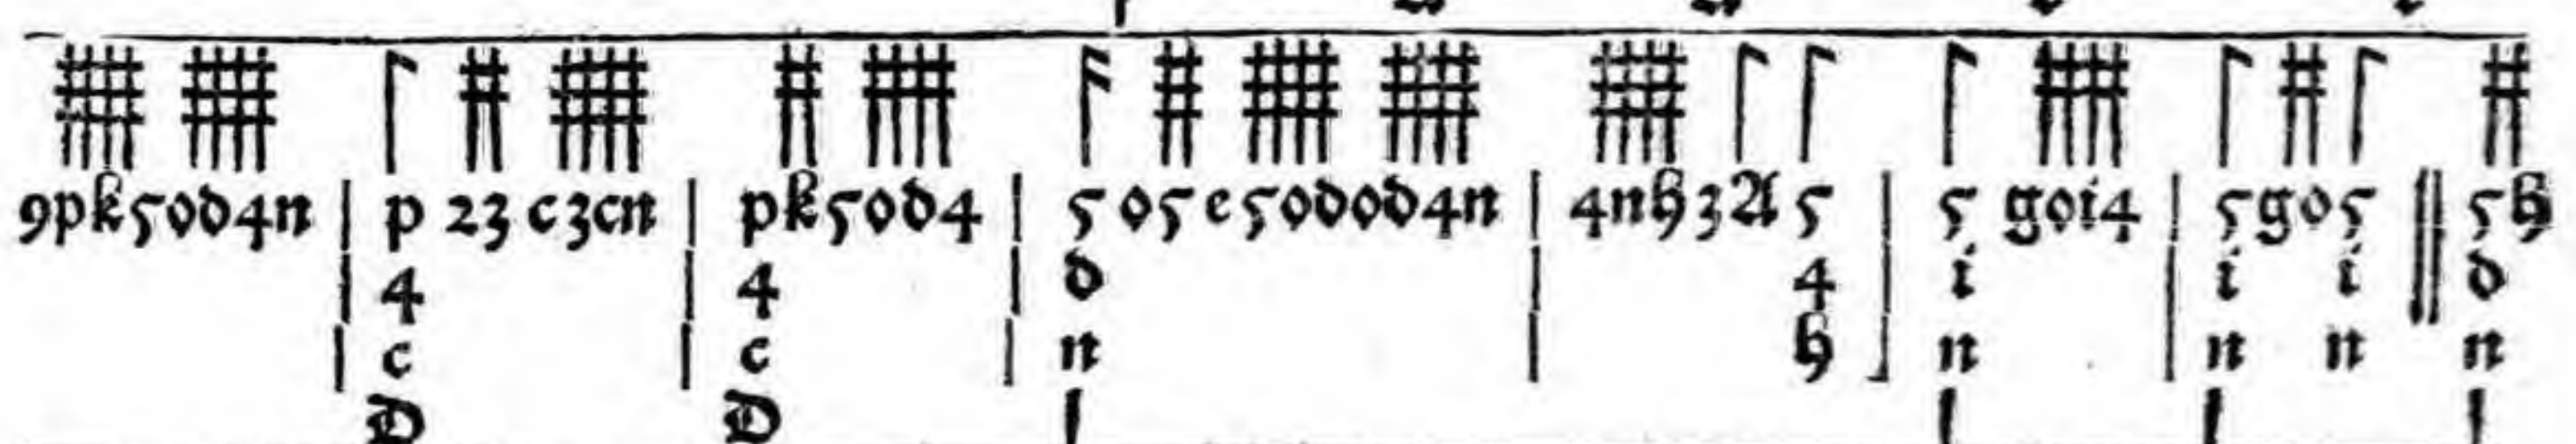 9pk50d4n | p 23 c3cn | pk50d4 | 5 05 e 50d0d4n | 4nh3A5 | 5 goi4 | 5go5 || 5h
| 4 | 4 | d | 4 | i | i i || d
| c | c | n | h | n | n n n
D D